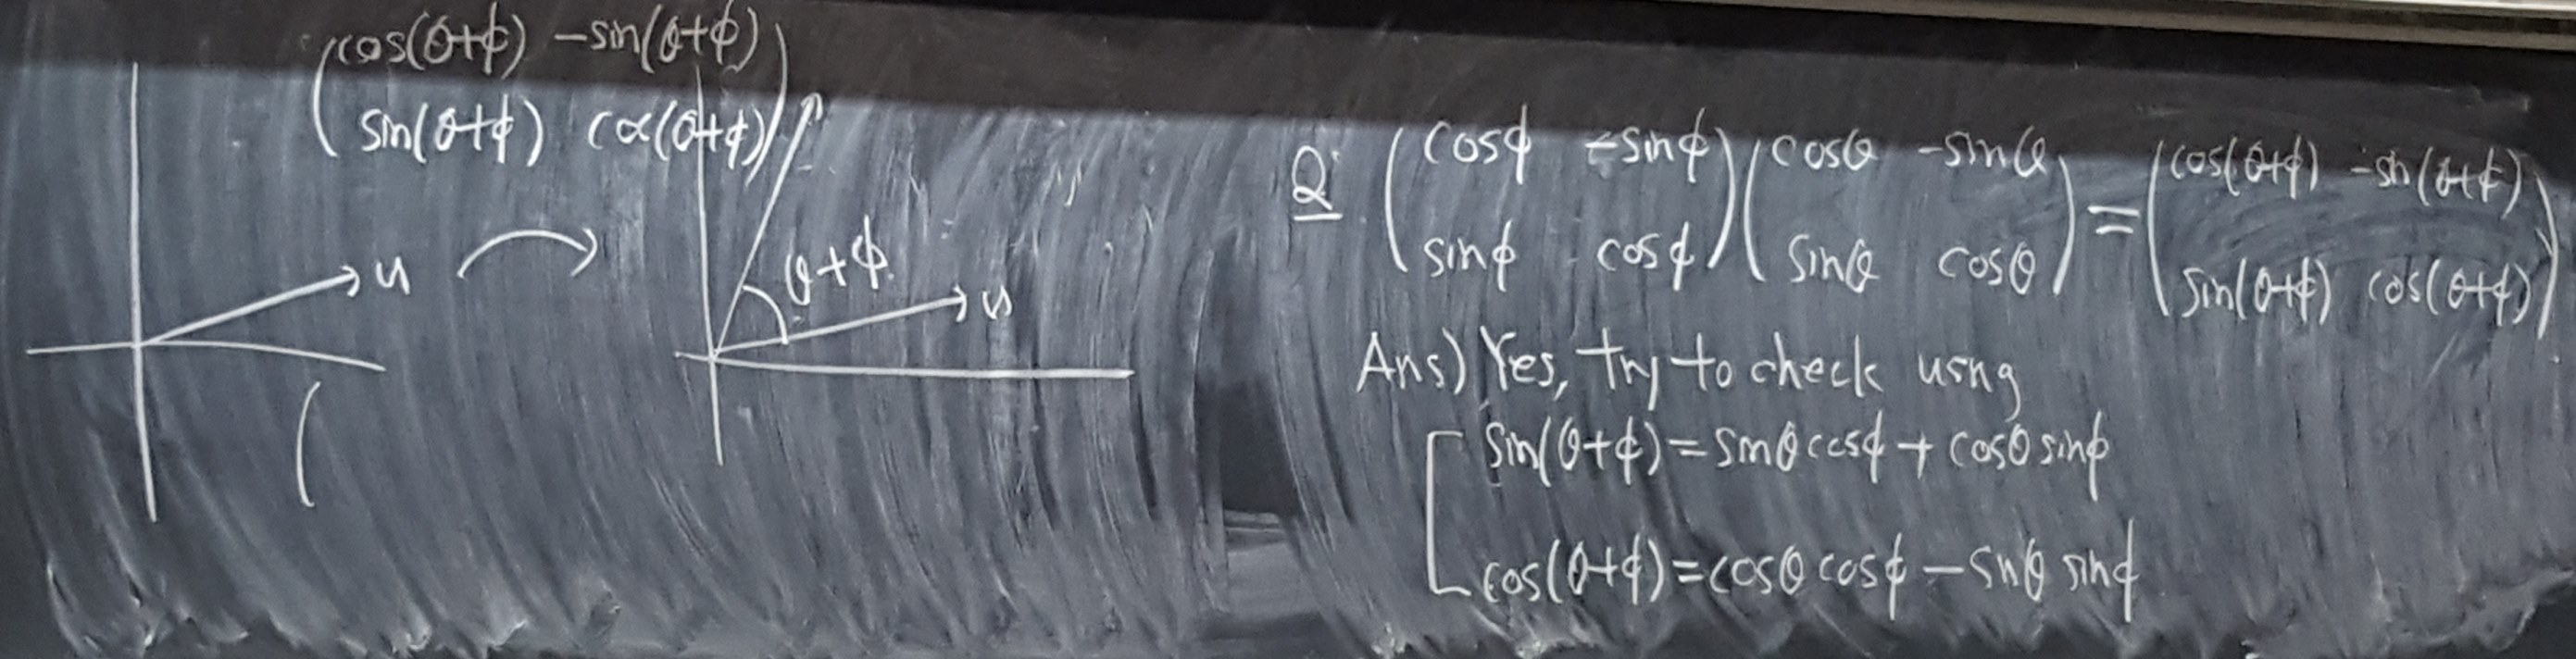 (cos(θ+ϕ) -sin(θ+ϕ)
sin(θ+ϕ) cos(θ+ϕ))
u
θ+ϕ
u
(
Q: (cosϕ -sinϕ
sinϕ cosϕ) (cosθ -sinθ
sinθ cosθ) = (cos(θ+ϕ) -sin(θ+ϕ)
sin(θ+ϕ) cos(θ+ϕ))
Ans) Yes, try to check using
sin(θ+ϕ)=sinθcosϕ+cosθsinϕ
cos(θ+ϕ)=cosθcosϕ-sinθsinϕ